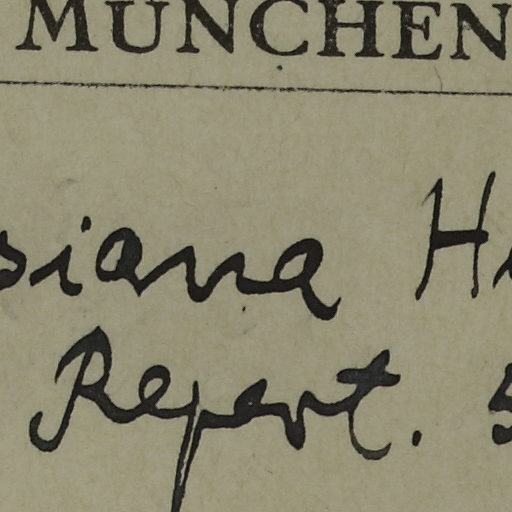 MÜNCHEN
siana H
Repert. 5